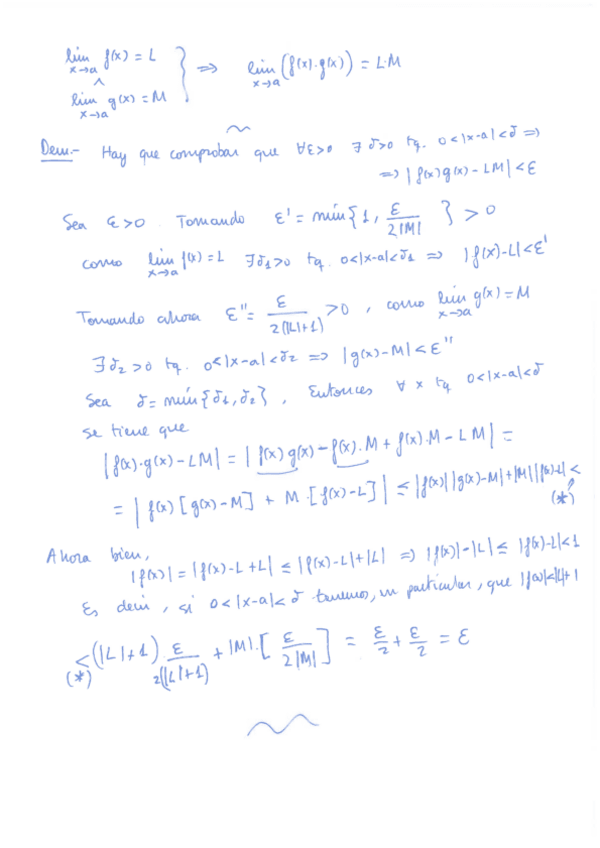 lim_{x→a} f(x) = L
∧ } ⟹ lim_{x→a} (f(x)·g(x)) = L·M
lim_{x→a} g(x) = M
Dem.- Hay que comprobar que ∀ε>0 ∃ δ>0 tq. 0<|x-a|<δ ⟹
⟹ |f(x)g(x) - LM| < ε
Sea ε>0. Tomando ε' = mín{1, ε/2|M|} > 0
como lim_{x→a} f(x) = L ∃δ₁>0 tq. 0<|x-a|<δ₁ ⟹ |f(x)-L|<ε'
Tomando ahora ε'' = ε/2(|L|+1) > 0, como lim_{x→a} g(x) = M
∃δ₂>0 tq. 0<|x-a|<δ₂ ⟹ |g(x)-M|<ε''
Sea δ = mín{δ₁,δ₂}, Entonces ∀ x tq 0<|x-a|<δ
se tiene que
|f(x)·g(x) - LM| = |f(x)g(x) - f(x)·M + f(x)·M - LM| =
= |f(x)[g(x)-M] + M·[f(x)-L]| ≤ |f(x)||g(x)-M|+|M||f(x)-L| <
(*)
Ahora bien,
|f(x)| = |f(x)-L+L| ≤ |f(x)-L|+|L| ⟹ |f(x)|-|L| ≤ |f(x)-L|<1
Es decir, si 0<|x-a|<δ tenemos, en particular, que |f(x)|<|L|+1
<(|L|+1) · ε/2(|L|+1) + |M|·[ε/2|M|] = ε/2 + ε/2 = ε
(*)